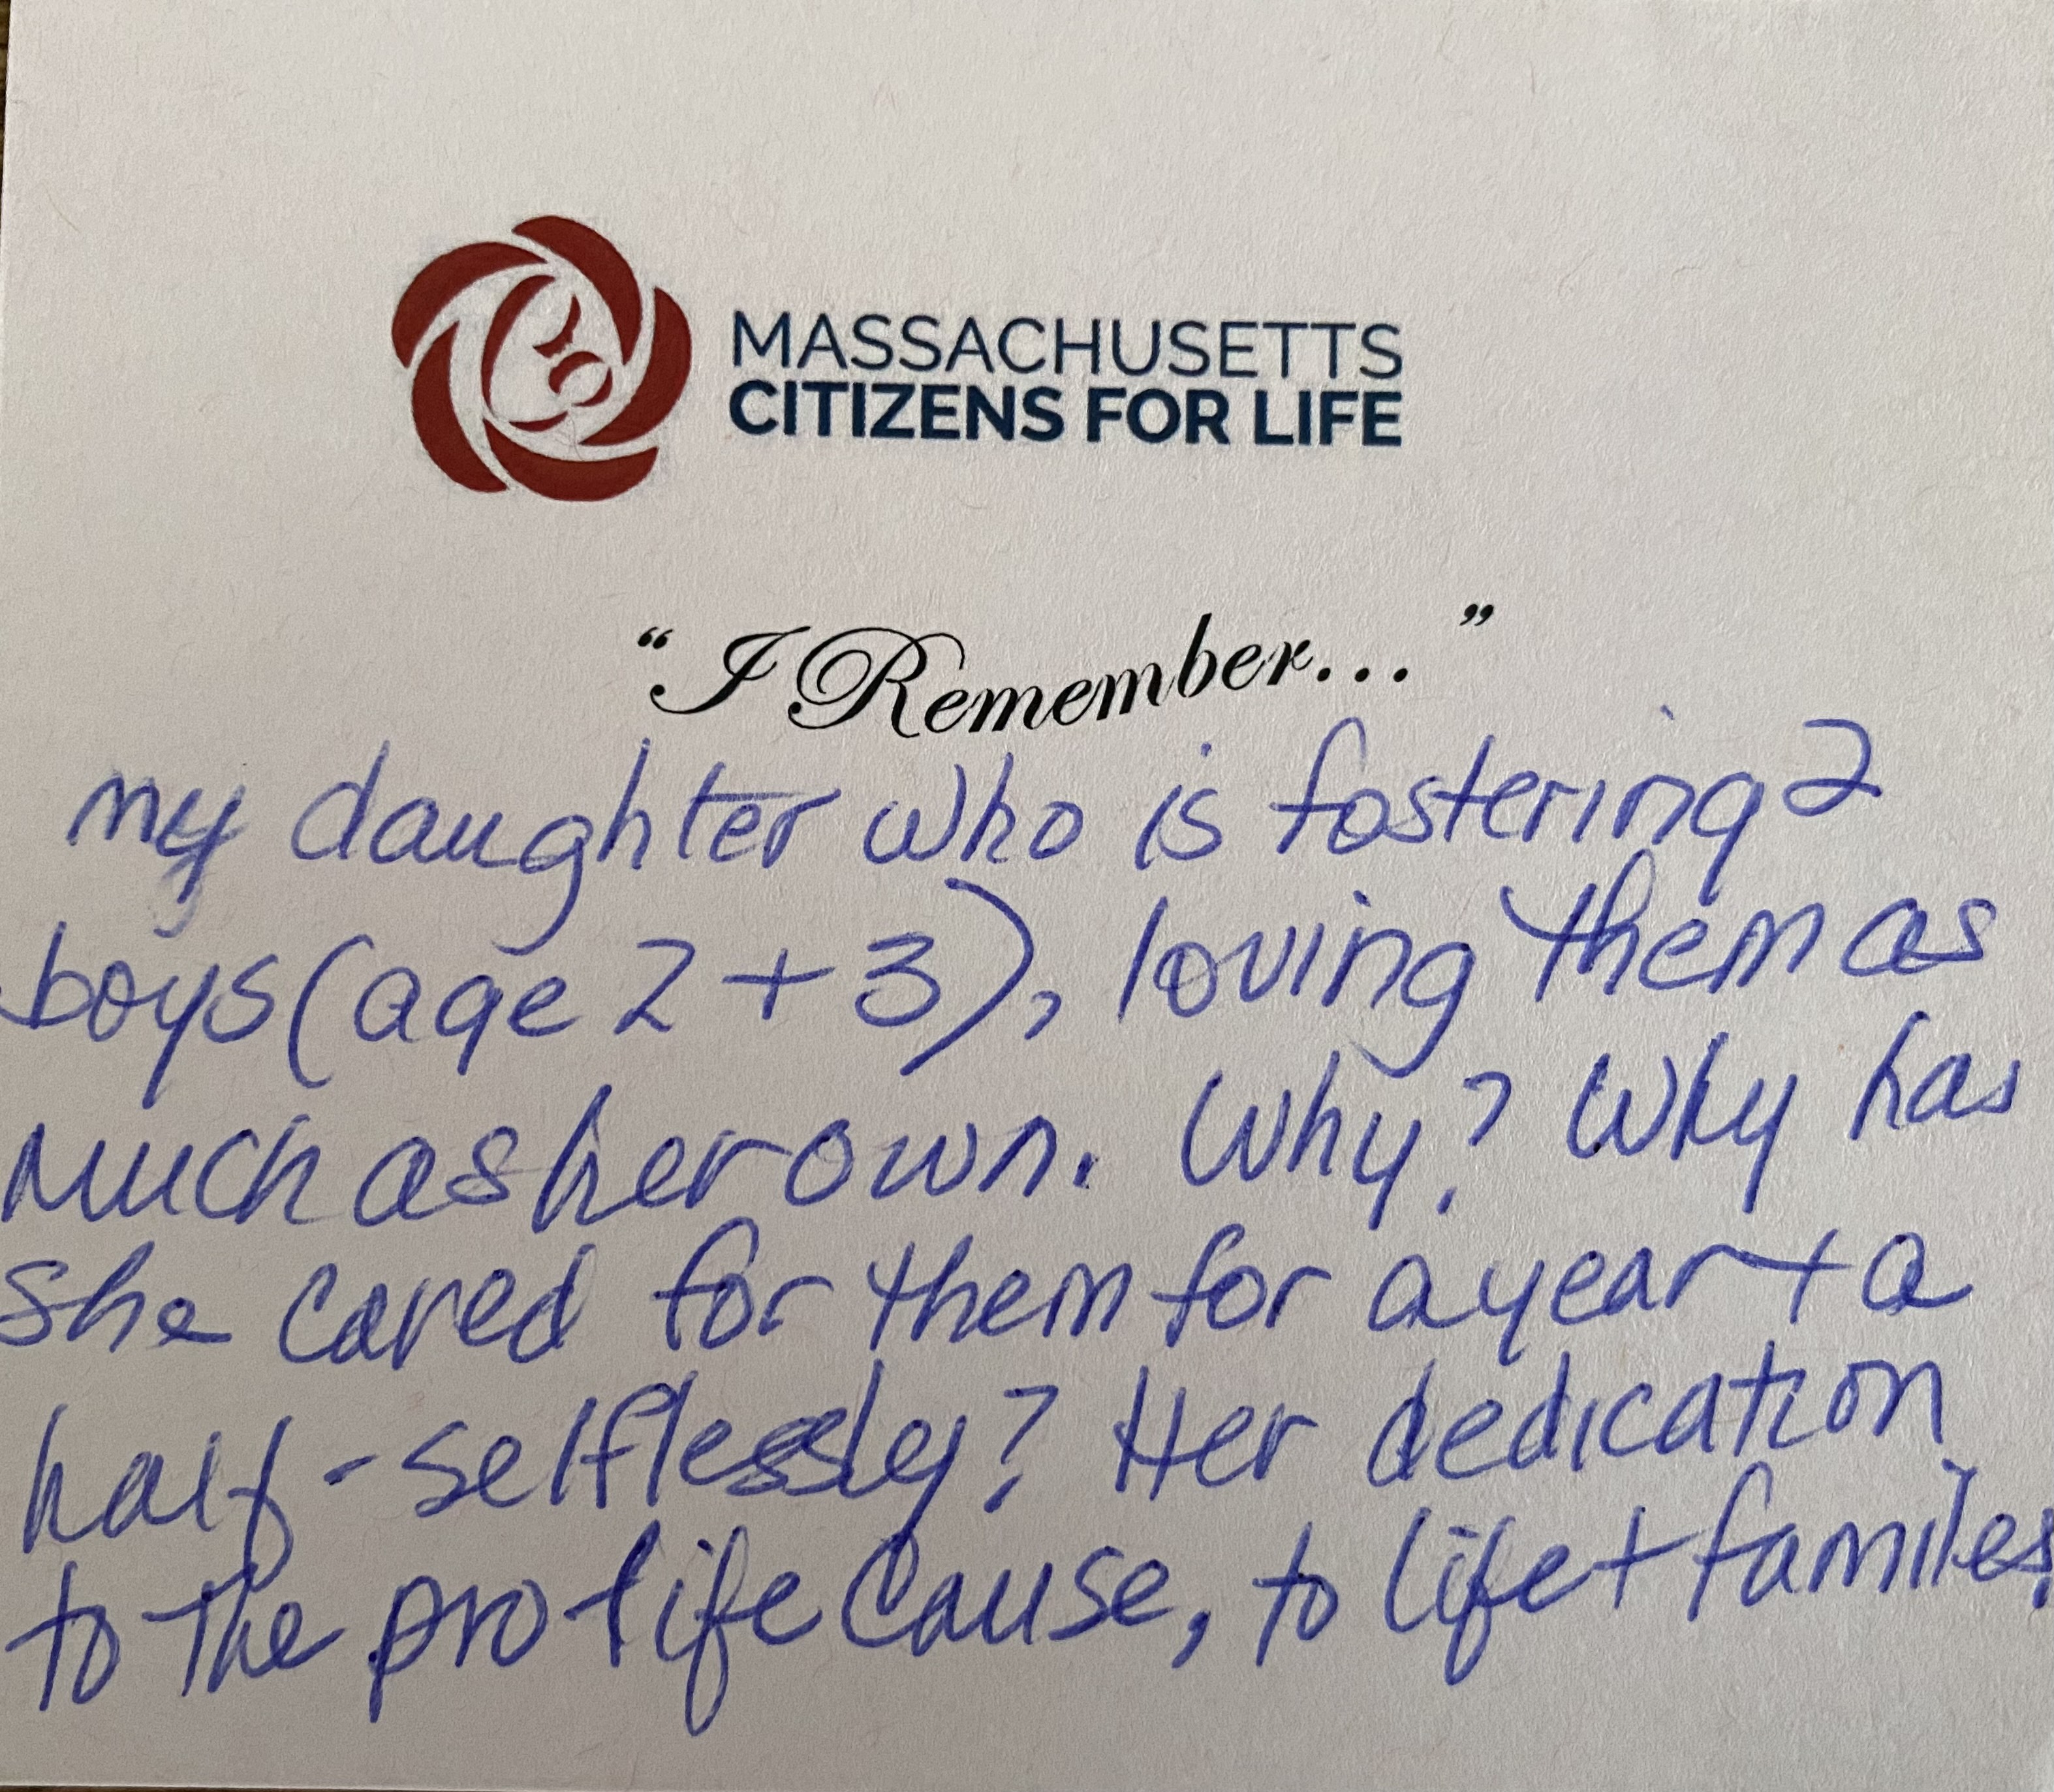 MASSACHUSETTS
CITIZENS FOR LIFE
“I Remember...”
my daughter who is fostering 2
boys (age 2 + 3), loving them as
much as her own. Why? Why has
she cared for them for a year + a
half - selflessly? Her dedication
to the pro life cause, to life + familes.